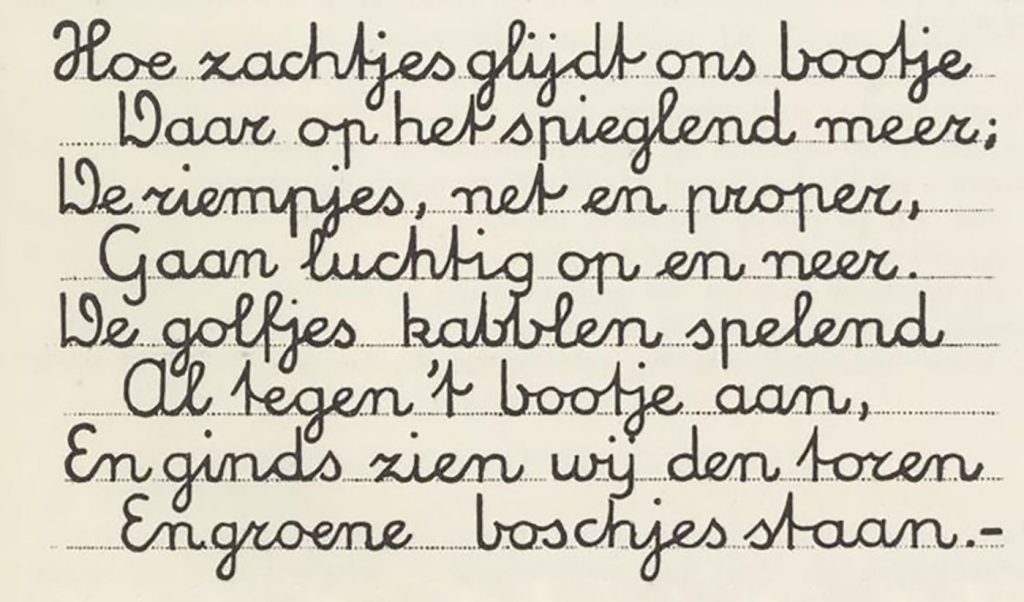 Hoe zachtjes glijdt ons bootje
Daar op het spieglend meer;
De riempjes, net en proper,
Gaan luchtig op en neer.
De golfjes kabblen spelend
Al tegen 't bootje aan,
En ginds zien wij den toren
En groene boschjes staan.-